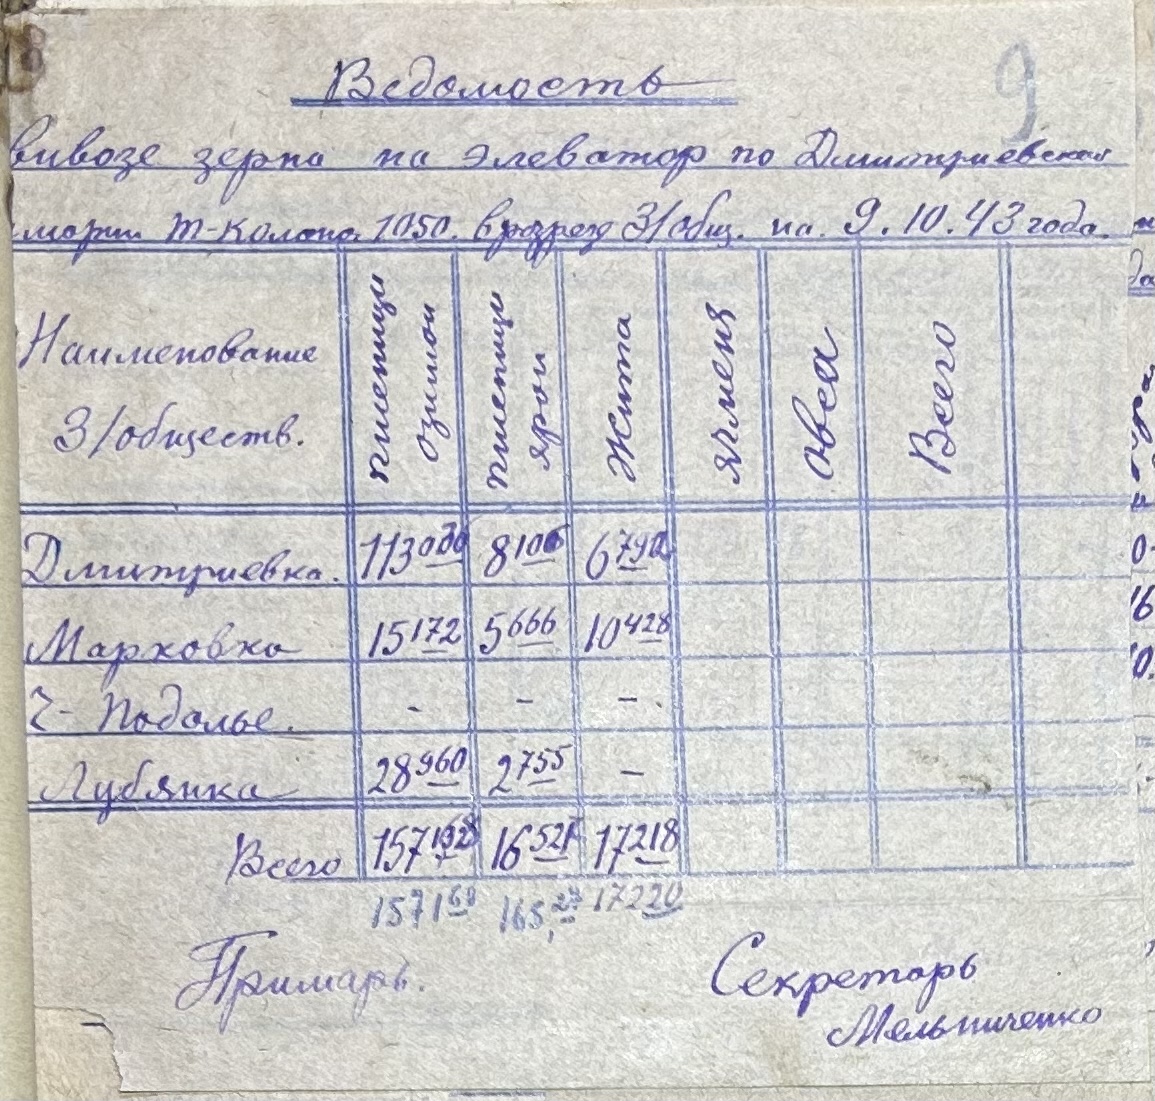 9
Ведомость
вивозе зерна на элеватор по Дмитриевская
т-Колона. 1050. в разрезе З/общ. на. 9.10.43 года.
Наименование З/обществ. пшеници озимои пшеници ярои Жита ячменя овса Всего
Дмитриевка. 113 8106 6790
Марковка 15172 5666 10428
Ч-Подолье. - - -
Лубянка 28960 2755 -
Всего 157 16 17218
1571 165, 17220
Примарь. Секретарь
Мельниченко